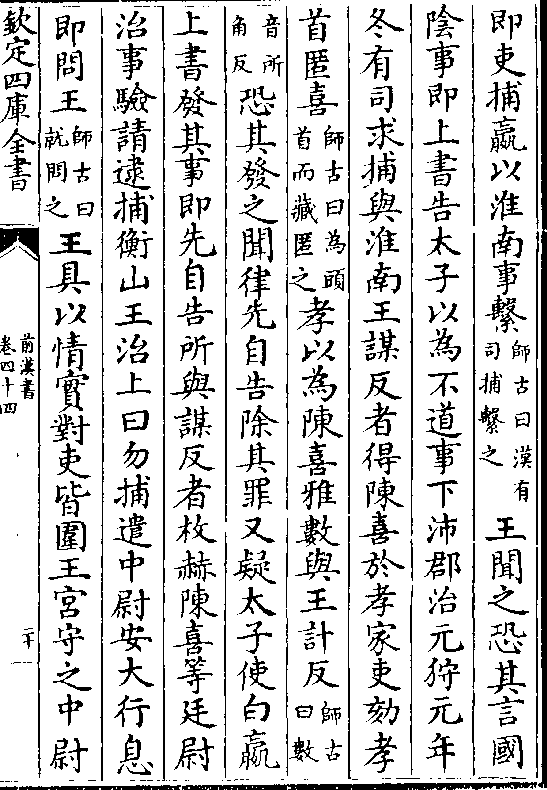 即吏捕嬴以淮南事繫師古曰漢有司捕繫之王聞之恐其言國
陰事即上書告太子以為不道事下沛郡治元狩元年
冬有司求捕與淮南王謀反者得陳喜於孝家吏劾孝
首匿喜師古曰為頭首而藏匿之孝以為陳喜雅數與王計反師古曰數
音所角反恐其發之聞律先自告除其罪又疑太子使白嬴
上書發其事即先自告所與謀反者枚赫陳喜等廷尉
治事驗請逮捕衡山王治上曰勿捕遣中尉安大行息
即問王師古曰就問之王具以情實對吏皆圍王宮守之中尉
欽定四庫全書
前漢書
卷四十四
二十